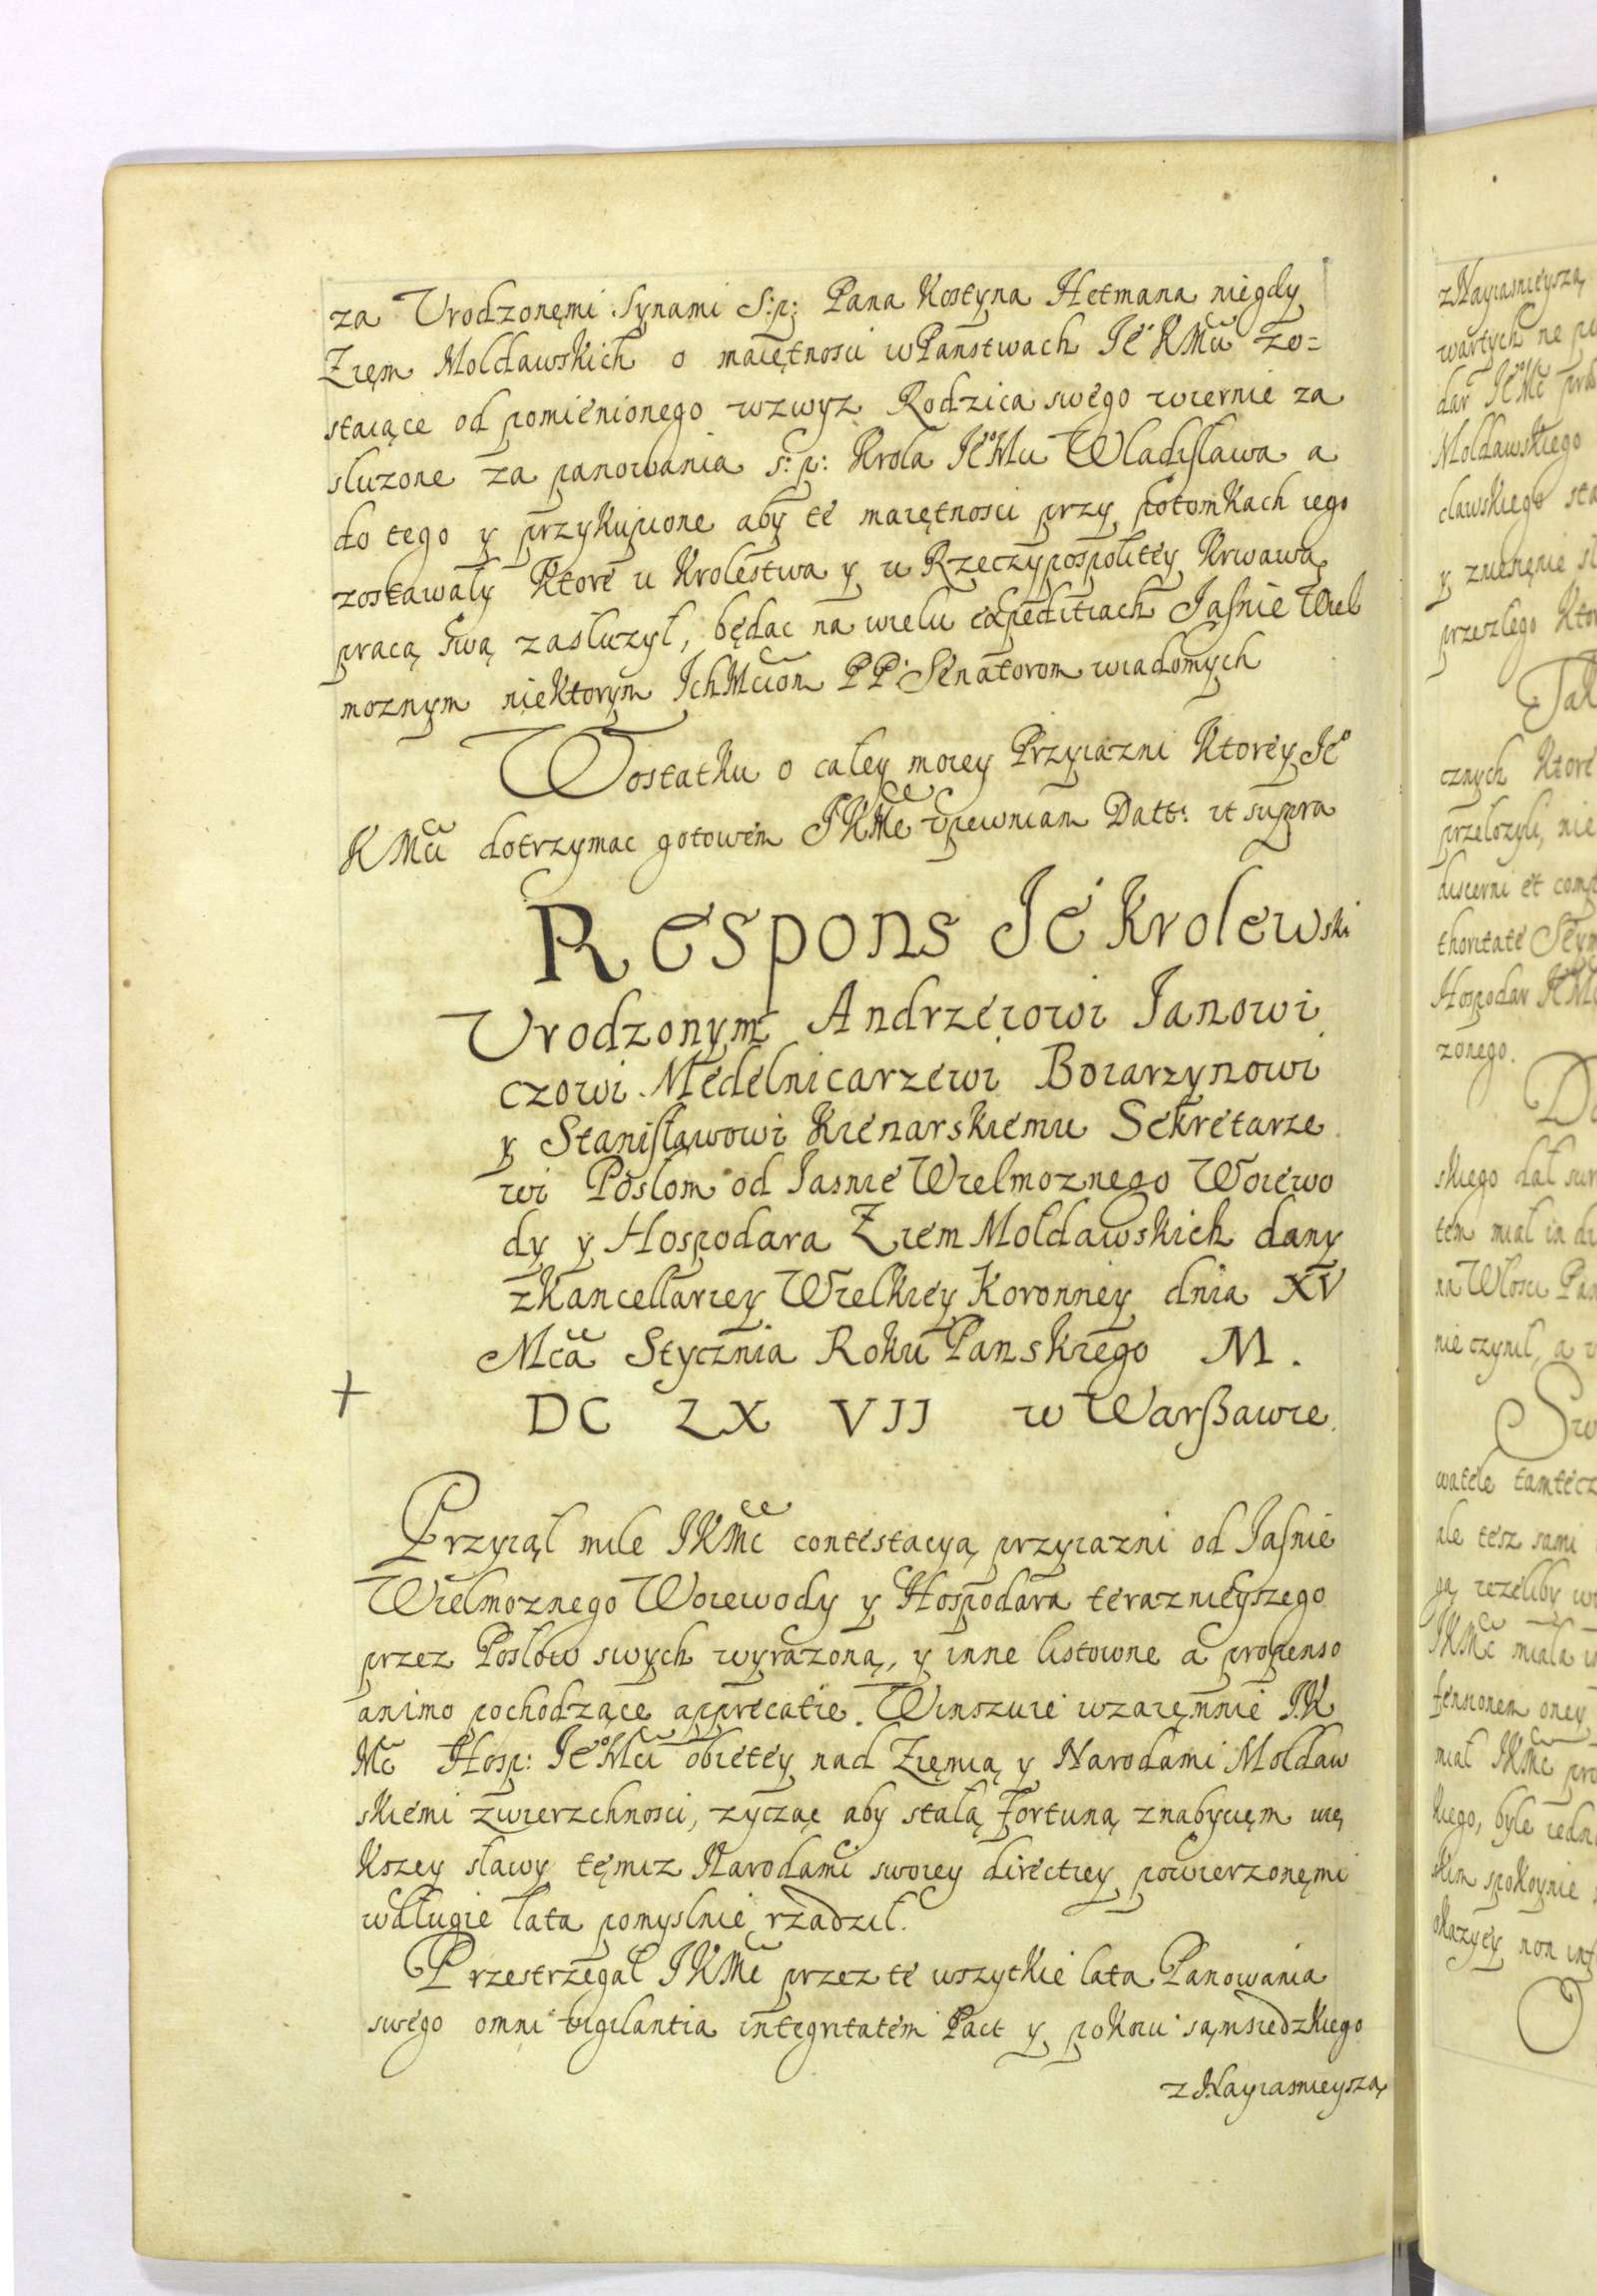 za Urodzonęmi Synami S: p: Pana Kostyna Hetmana niegdy
Zięm Moldawskich o maiętnosci w Panstwach Je° KMci zo=
staiące od pomienionego wzwyz Rodzica swego wiernie za
sluzone za panowania s: p: Krola Je°Mci Wladisława a
do tego y przykupione aby te maiętnosci przy potomkach iego
zostawały Ktore u Krolestwa y u Rzeczypospolitey Krwawą
pracą swą zasłuzył, będac na wielu expeditiach Jasnie Wiel
moznym niektorym Ich Mciom PP: Senatorom wiadomych
Wostatku o całey moiey Przyiazni Ktorey Je°
KMci dotrzymac gotowem JKMc upewniam Datt: ut supra
Respons Je° Krolewski
Urodzonym Andrzeiowi Janowi
czowi Medelnicarzewi Boiarzynowi
y Stanisławowi Kienarskiemu Sekretarze
wi Posłom od Jasnie Wielmoznego Woiewo
dy y Hospodara Ziem Mołdawskich dany
z Kancellariey Wielkiey Koronney dnia XV
Mca Stycznia Roku Panskiego M.
DC LX VII w Warßawie.
Przyiął mile JKMc contestacyą przyiazni od Jasnie
Wielmoznego Woiewody y Hospodara teraznieyszego
przez Posłow swych wyrazoną, y inne listowne a propenso
animo pochodzące apprecatie. Winszuie wzaięmnie JK
Mc Hosp: Je°Mci obietey nad Zięmią y Narodami Moldaw
skiemi zwierzchnosci, zycząc aby stałą fortuną znabycięm wię
kszey sławy tęmiz Narodami swoiey directiey powierzonęmi
w długie lata pomyslnie rządził.
Przestrzegał JKMc przez te wszytkie lata Panowania
swego omni vigilantia integritatem Pact y pokoiu sąmsiedzkiego
z Nayiasnieyszą
z Nayiasnieyszą
wartych
dar Je°Mc
Moldawskiego
dawskiego
y zniesięnie
przeszlego
Tak
cznych Ktore
przelozyli, nie
discerni et
thoritate
Hospodar
zonego.
skiego dał
tem miał in
na Włosci
nie czynił, a
watele
ale tesz sami
gą iezeliby
JKMc miała
fensionem oney
miał JKMc
kiego, byle
skim spokoynie
okazyey non